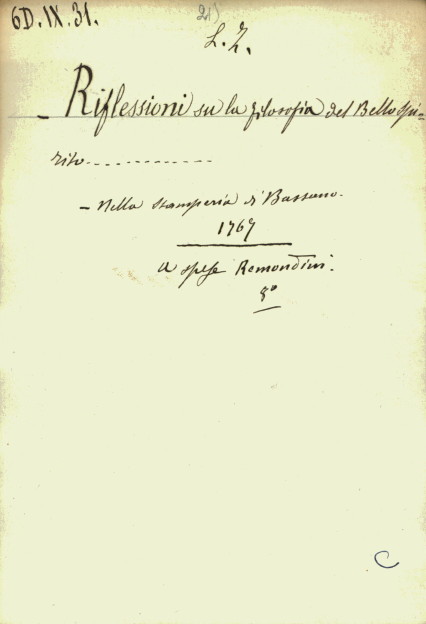 6D. IX. 31.
21)
L. Z.
- Riflessioni su la filosofia del Bello Spi=
rito..............
- Nella stamperia di Bassano.
1767
a spese Remondini.
8º
C